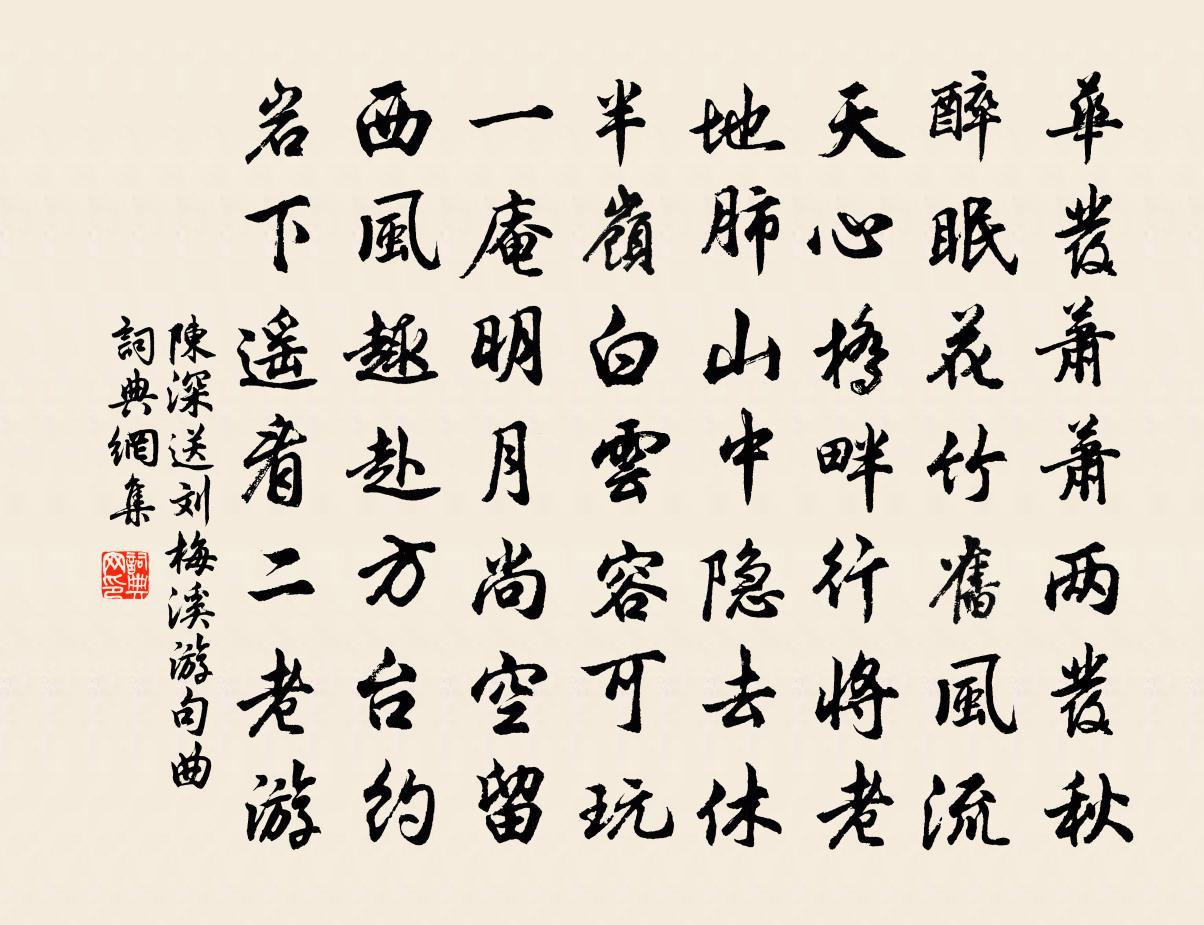 華發萧萧两發秋
醉眠花竹舊風流
天心橋畔行将老
地肺山中隐去休
半嶺白雲容可玩
一庵明月尚空留
西風趣赴方台约
岩下遥看二老游
陳深送刘梅溪游句曲
詞典網集
詞典网印